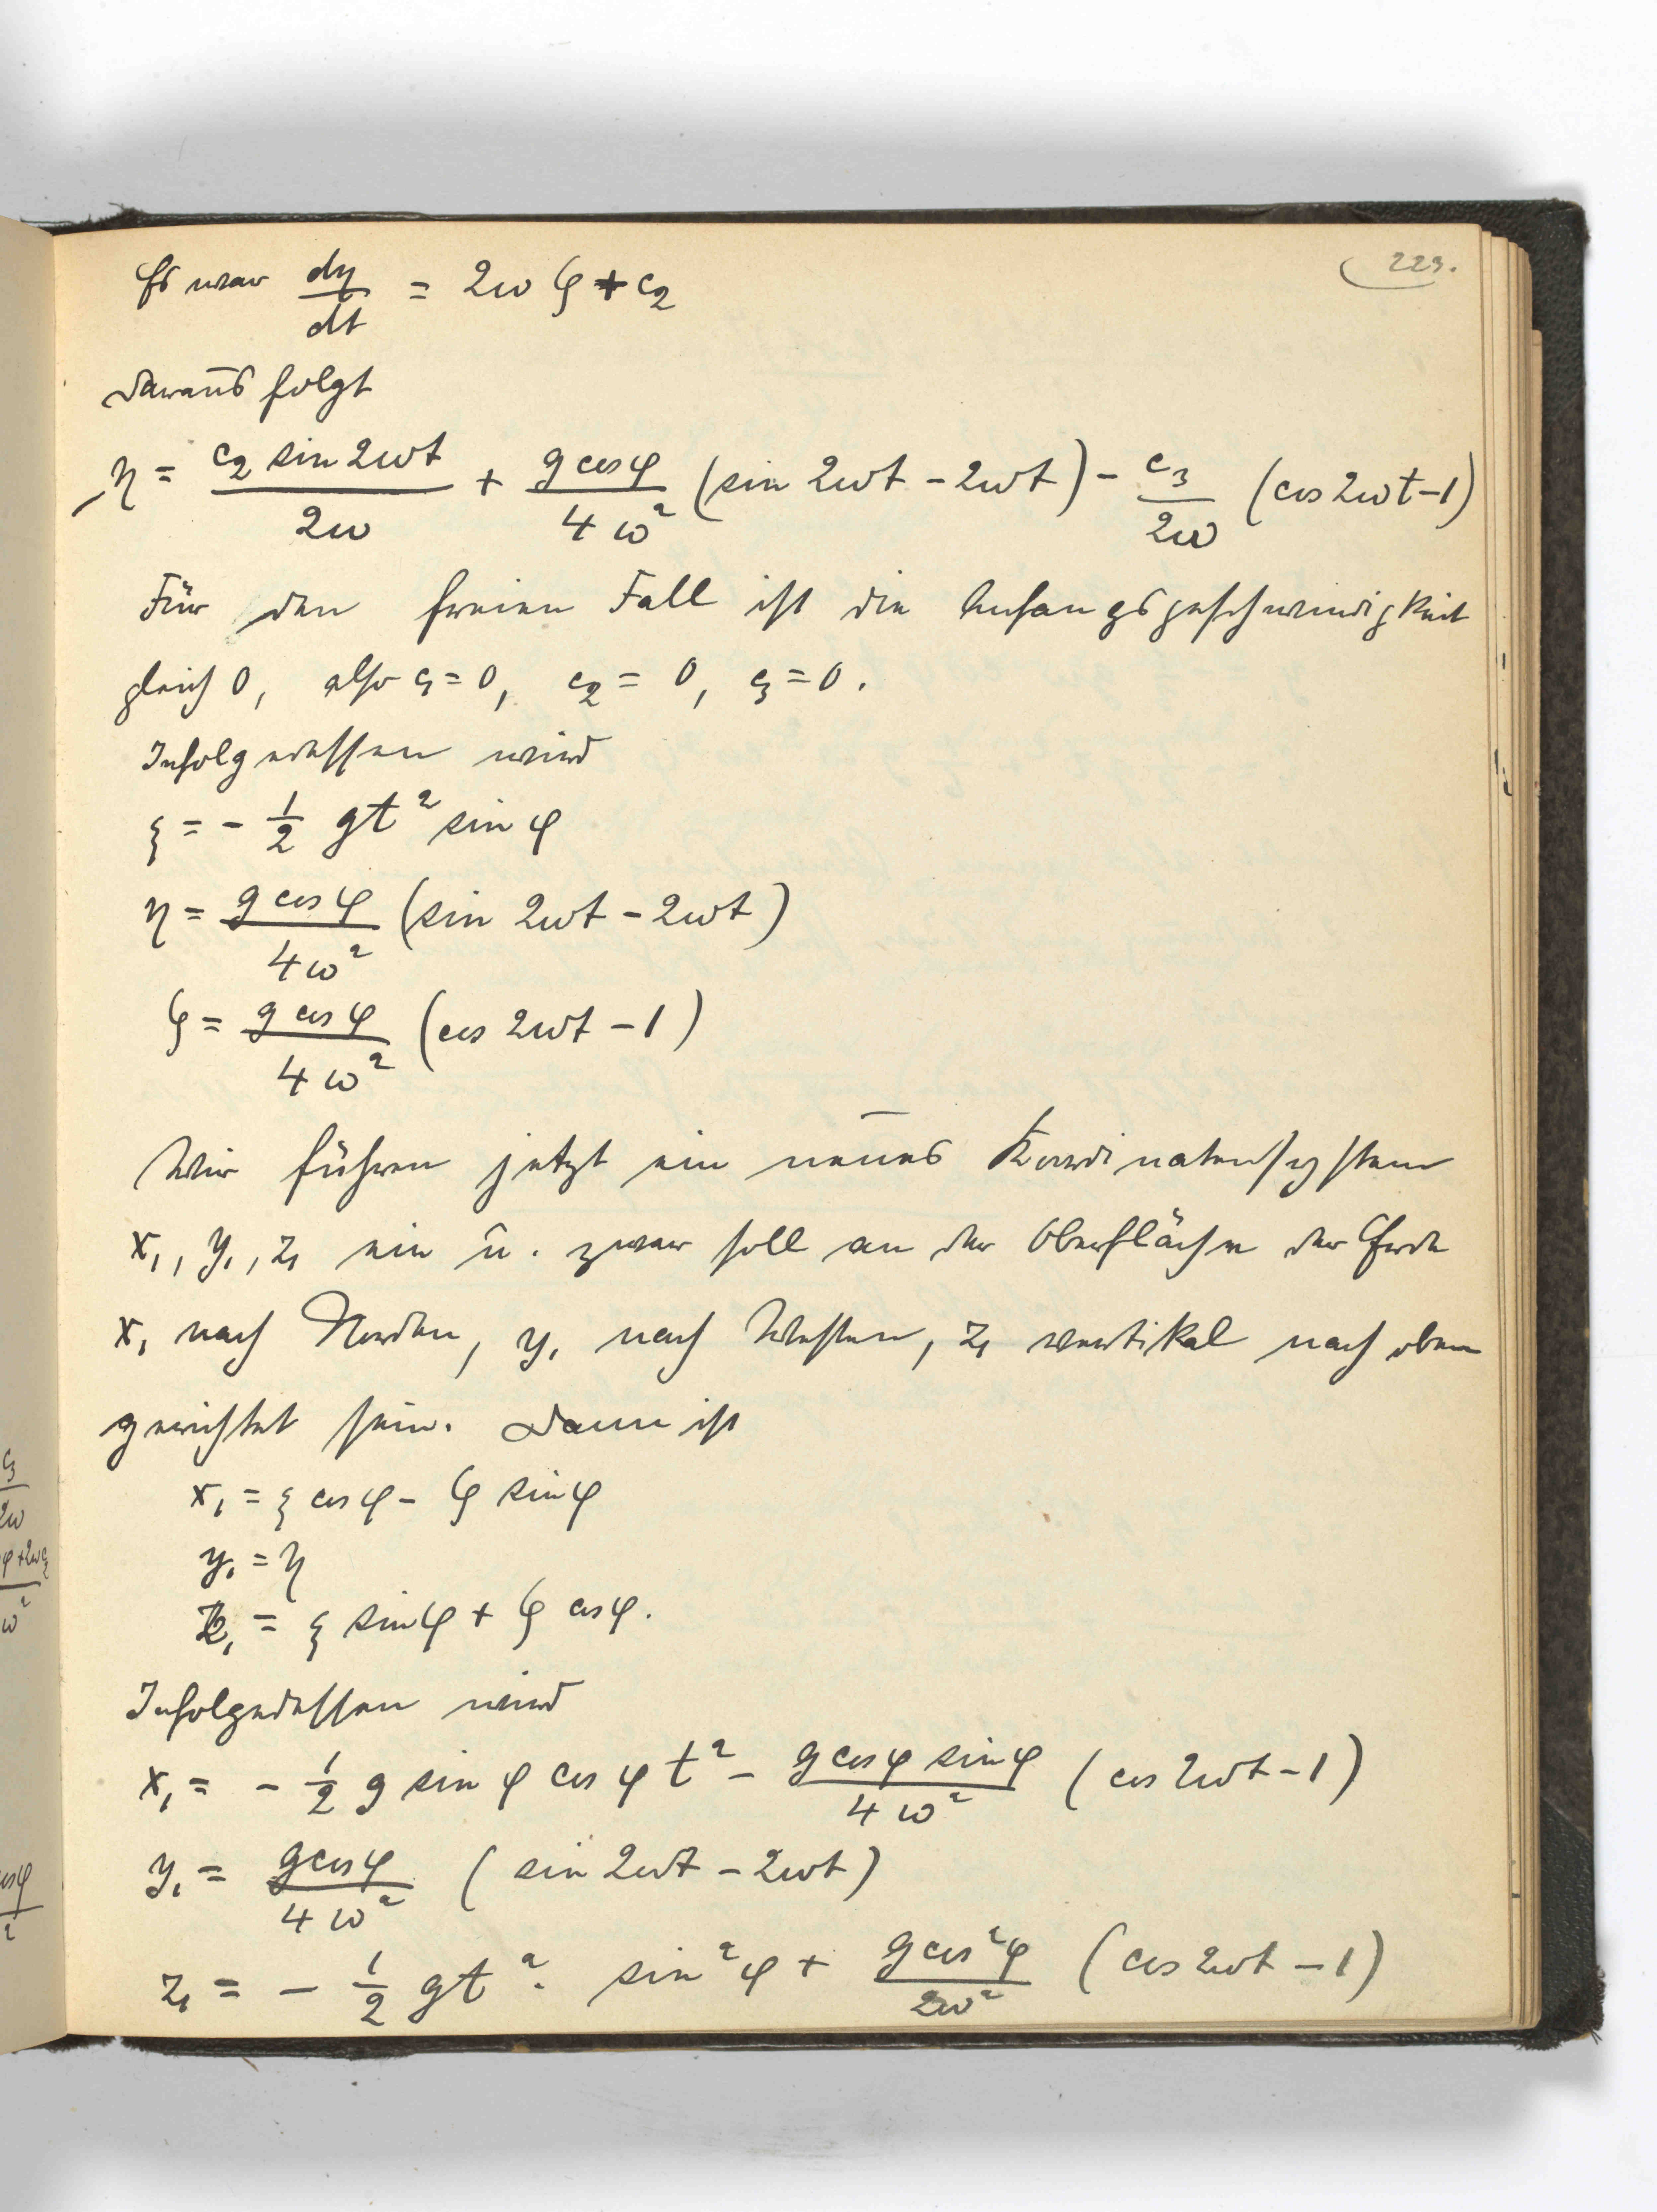 223.
Es war dη/dt = 2ω ζ + c₂
Daraus folgt
η = c₂ sin 2ωt / 2ω + g cos φ / 4ω² (sin 2ωt − 2ωt) − c₃ / 2ω (cos 2ωt − 1)
Für den freien Fall ist die Anfangsgeschwindigkeit
gleich 0, also c₁ = 0, c₂ = 0, c₃ = 0.
Infolgedessen wird
ξ = − 1/2 gt² sin φ
η = g cos φ / 4ω² (sin 2ωt − 2ωt)
ζ = g cos φ / 4ω² (cos 2ωt − 1)
Wir führen jetzt ein neues Koordinatensystem
x₁, y₁, z₁ ein u. zwar soll an der Oberfläche der Erde
x₁ nach Norden, y₁ nach Westen, z₁ vertikal nach oben
gerichtet sein. Dann ist
x₁ = ξ cos φ − ζ sin φ
y₁ = η
z₁ = ξ sin φ + ζ cos φ.
Infolgedessen wird
x₁ = − 1/2 g sin φ cos φ t² − g cos φ sin φ / 4ω² (cos 2ωt − 1)
y₁ = g cos φ / 4ω² (sin 2ωt − 2ωt)
z₁ = − 1/2 gt² · sin² φ + g cos² φ / 2ω² (cos 2ωt − 1)